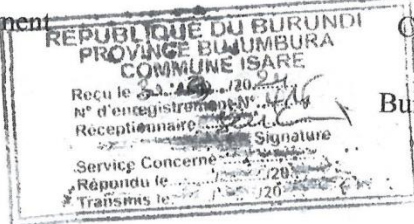 ment
REPUBLIQUE DU BURUNDI
PROVINCE BUJUMBURA
COMMUNE ISARE
Reçu le ..../20
N° d'enregistrement N° 416
Réceptionnaire
Signature
Bu
Service Concerné
Répondu le ..../..../20
Transmis le ..../..../20